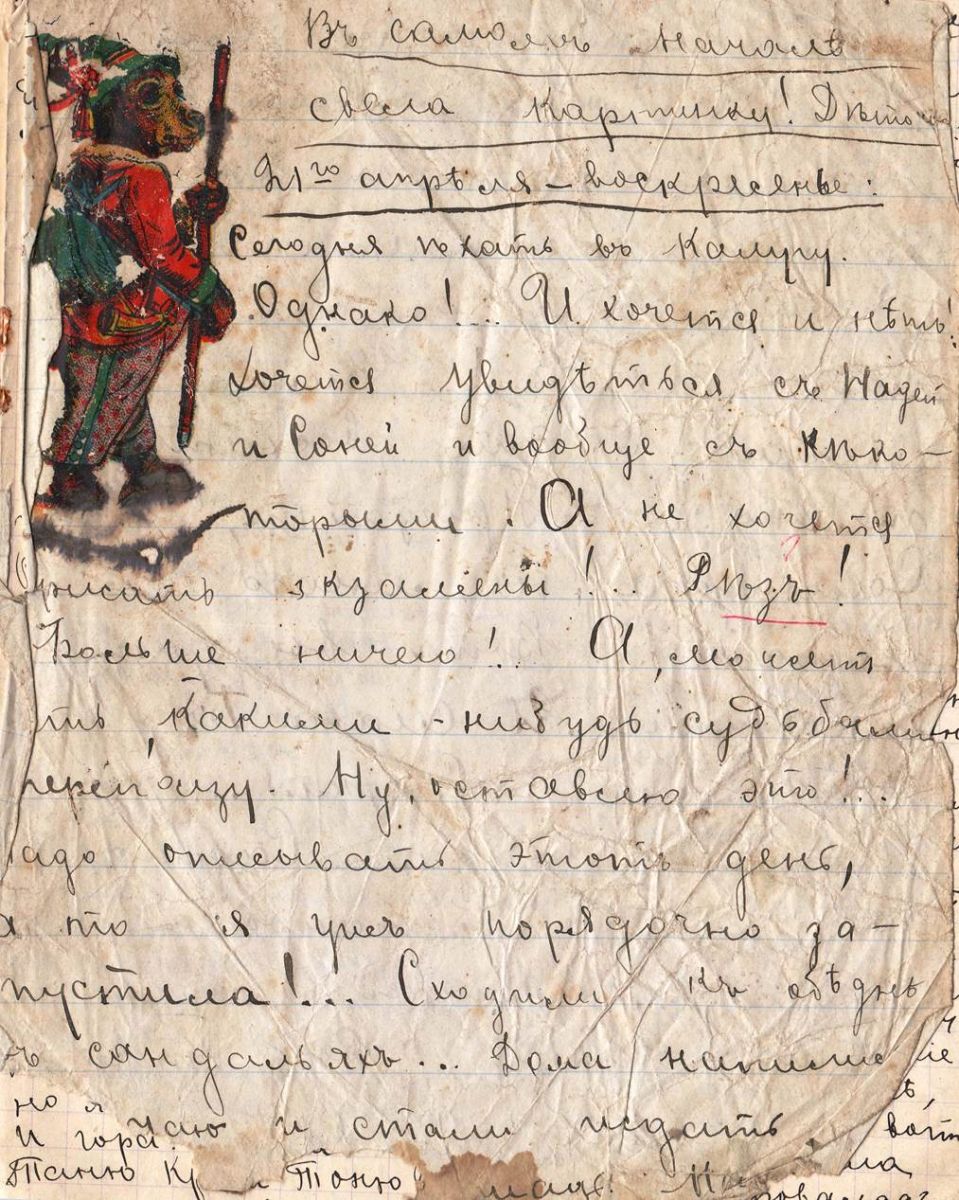 Въ самомъ началѣ
свела картинку! Дѣто
21го апрѣля – воскресенье:
Сегодня ѣхать въ Калугу.
Однако!... И хочется и нѣтъ!
Хочется увидѣться съ Надей
и Соней и вообще съ нѣко–
торыми. А не хочется
писать экзамены!... Рѣзъ!
Больше ничего!.. А, можетъ
ть, какими-нибудь судьбами
перелѣзу. Ну, оставлю это!...
адо описывать этотъ день,
а то я ужъ порядочно за–
пустила!... Сходили къ обѣднѣ
въ сандальяхъ.. Дома напили
чаю и стали ждать
но я
и гора
Таню Кр
Тоню
вотъ